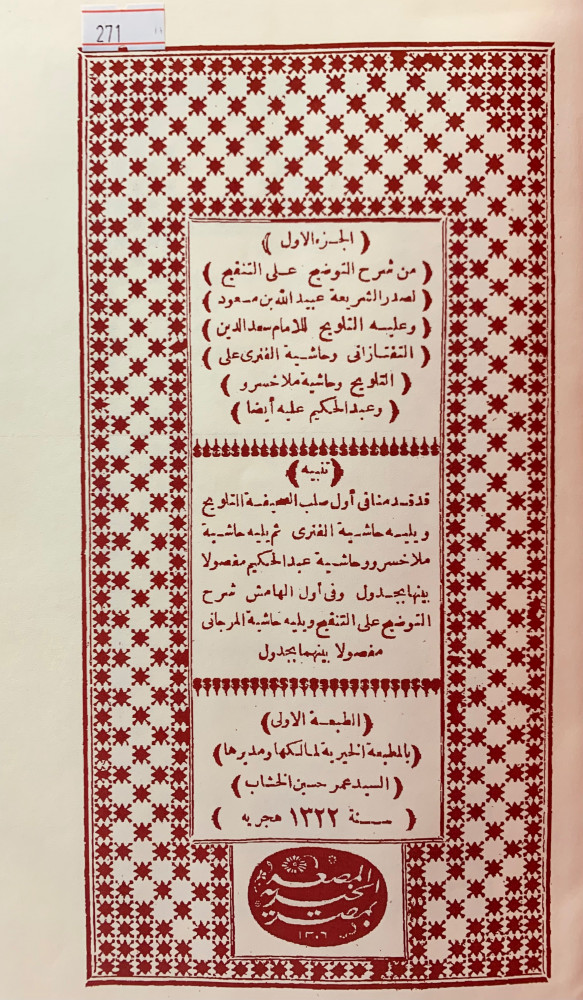 271
﴿ الجزء الاول ﴾
﴿ من شرح التوضيح على التنقيح ﴾
﴿ لصدر الشريعة عبيد الله بن مسعود ﴾
﴿ وعليه التلويح للامام سعد الدين ﴾
﴿ التفتازانى وحاشية الفنرى على ﴾
﴿ التلويح وحاشية ملا خسرو ﴾
﴿ وعبد الحكيم عليه أيضا ﴾
﴿ تنبيه ﴾
قد قدمنا فى أول صلب الصحيفة التلويح
ويليه حاشية الفنرى ثم يليه حاشية
ملا خسرو وحاشية عبد الحكيم مفصولا
بينها بجدول وفى أول الهامش شرح
التوضيح على التنقيح ويليه حاشية المرجانى
مفصولا بينهما بجدول
﴿ الطبعة الاولى ﴾
﴿ بالمطبعة الخيرية لمالكها ومديرها ﴾
﴿ السيد عمر حسين الخشاب ﴾
﴿ سنة ١٣٢٢ هجريه ﴾
الخيرية
بمصر
١٣٠٦